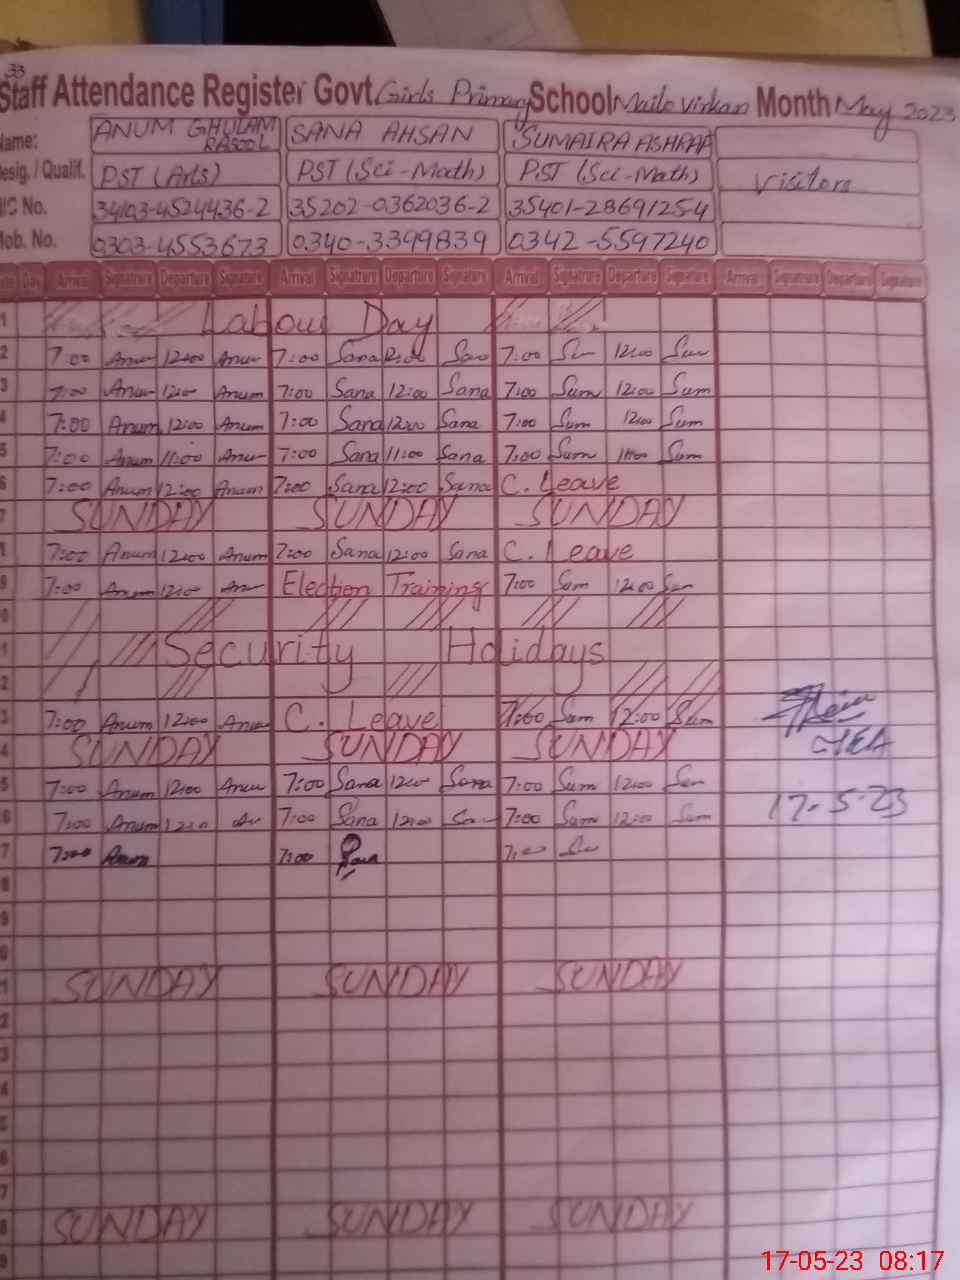 33
Staff Attendance Register Govt. Girls Primary School Maile Virkan Month May 2023
Name: ANUM GHULAM RASOOL SANA AHSAN SUMAIRA ASHRAF
Desig. / Qualif. PST (Arts) PST (Sci-Math) PST (Sci-Math) Visitors
NIC No. 34103-4524436-2 35202-0362036-2 35401-2869125-4
Mob. No. 0303-4553673 0340-3399839 0342-5597240
Date Day Arrival Signatrure Departure Signature Arrival Signatrure Departure Signature Arrival Signatrure Departure Signature Arrival Signatrure Departure Signature
1 Labour Day
2 7:00 Anum 12:00 Anum 7:00 Sana 12:00 Sana 7:00 12:00
3 7:00 Anum 12:00 Anum 7:00 Sana 12:00 Sana 7:00 Sum 12:00 Sum
4 7:00 Anum 12:00 Anum 7:00 Sana 12:00 Sana 7:00 Sum 12:00 Sum
5 7:00 Anum 11:00 Anum 7:00 Sana 11:00 Sana 7:00 Sum 11:00 Sum
6 7:00 Anum 12:00 Anum 7:00 Sana 12:00 Sana C. Leave
7 SUNDAY SUNDAY SUNDAY
7:00 Anum 12:00 Anum 7:00 Sana 12:00 Sana C. Leave
9 7:00 Anum 12:00 Election Training 7:00 Sum 12:00 Sum
0
1 Security Holidays
2
3 7:00 Anum 12:00 Anum C. Leave 7:00 Sum 12:00 Sum
4 SUNDAY SUNDAY SUNDAY
5 7:00 Anum 12:00 Anum 7:00 Sana 12:00 Sana 7:00 Sum 12:00
6 7:00 Anum 7:00 Sana 12:00 7:00 Sum 12:00 Sum
17-5-23
7 7:00 Anum 7:00 7:00
8
9
0
1 SUNDAY SUNDAY SUNDAY
2
3
4
5
6
7
8 SUNDAY SUNDAY SUNDAY
9
17-05-23 08:17